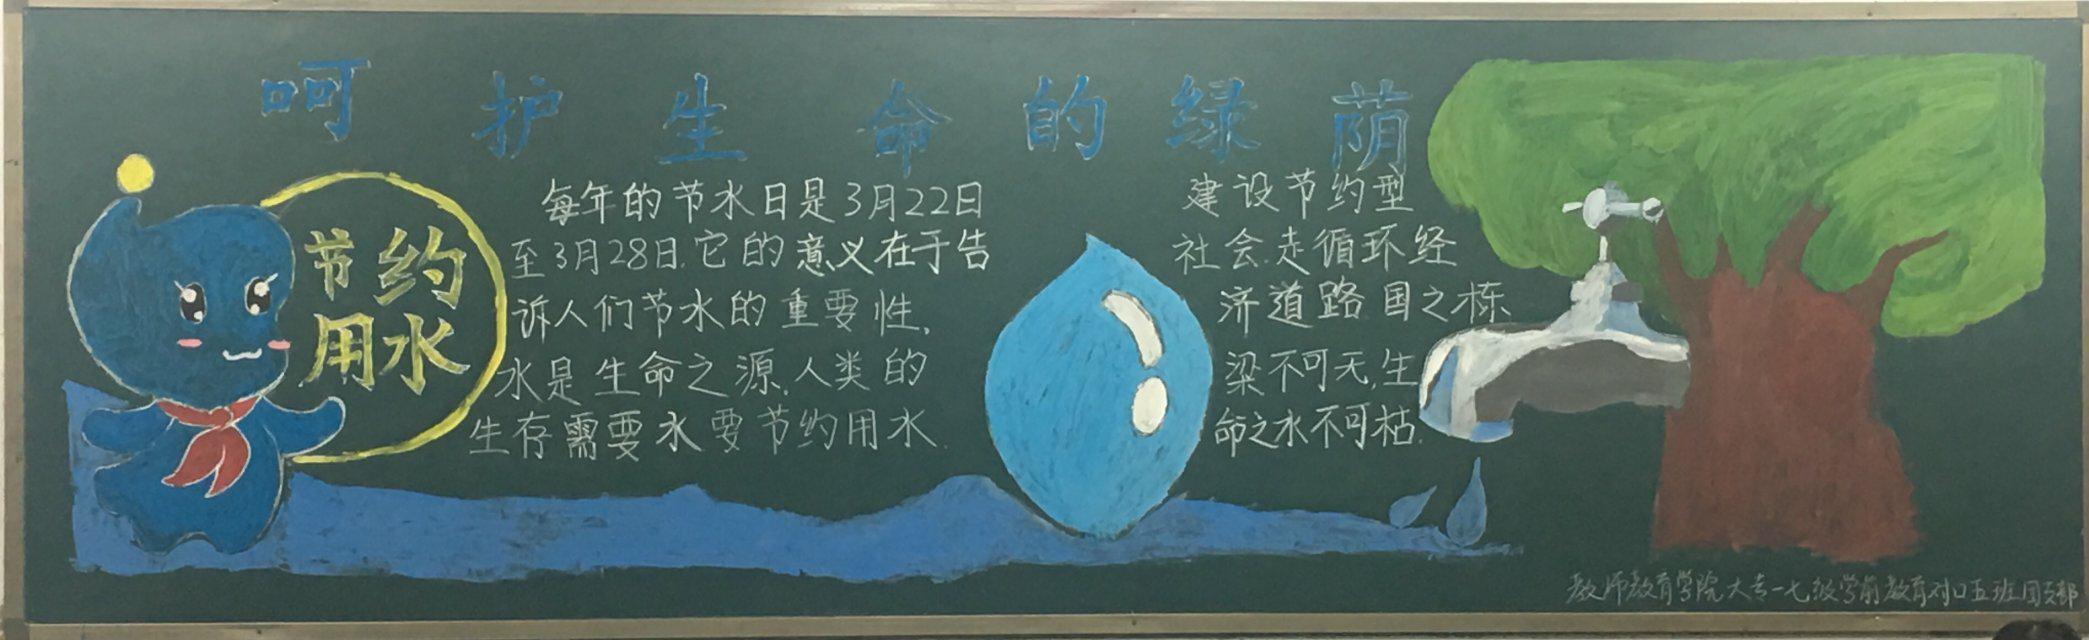 呵护生命的绿荫
节约
用水
每年的节水日是3月22日
至3月28日.它的意义在于告
诉人们节水的重要性,
水是生命之源.人类的
生存需要水.要节约用水.
建设节约型
社会.走循环经
济道路国之栋
梁不可无,生
命之水不可枯.
教师教育学院大专一七级学前教育对口五班团支部